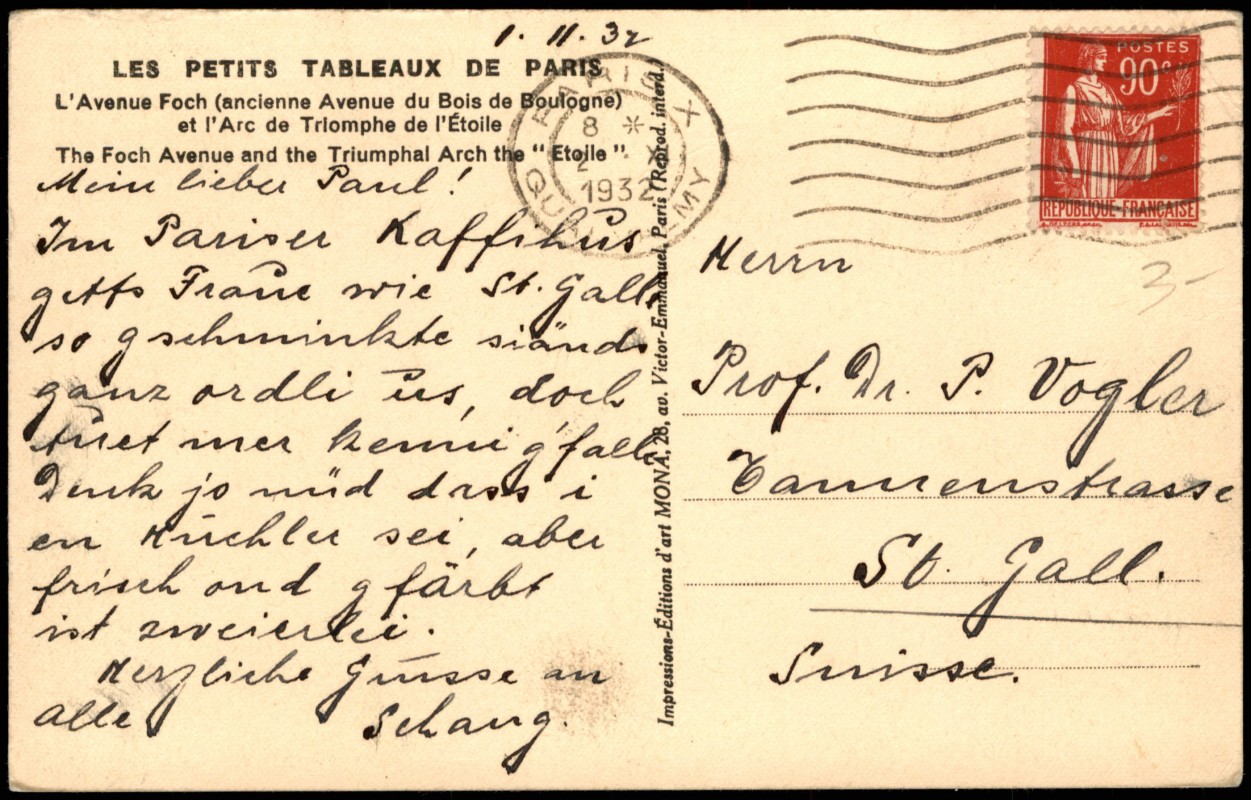 1. 11. 32
LES PETITS TABLEAUX DE PARIS
L'Avenue Foch (ancienne Avenue du Bois de Boulogne)
et l'Arc de Triomphe de l'Étoile
The Foch Avenue and the Triumphal Arch the "Etoile"
PARIS X
8 *
2 · X
1932
QU MY
POSTES
90c
REPUBLIQUE FRANÇAISE
3-
Mein lieber Paul!
Im Pariser Kaffihus
getts Fraue wie St. Galle
so gschminkte siänds
ganz ordli üs, doch
tüet mer kenni g'falle
Denk jo nüd dass i
en Küchler sei, aber
frisch ond gfärbt
ist zweierlei.
Herzliche Grüsse an
alle Schang.
Impressions-Éditions d'art MONA, 28, av. Victor-Emmanuel, Paris (Reprod. interd.)
Herrn
Prof. Dr. P. Vogler
Tannenstrasse
St. Gall.
Suisse.